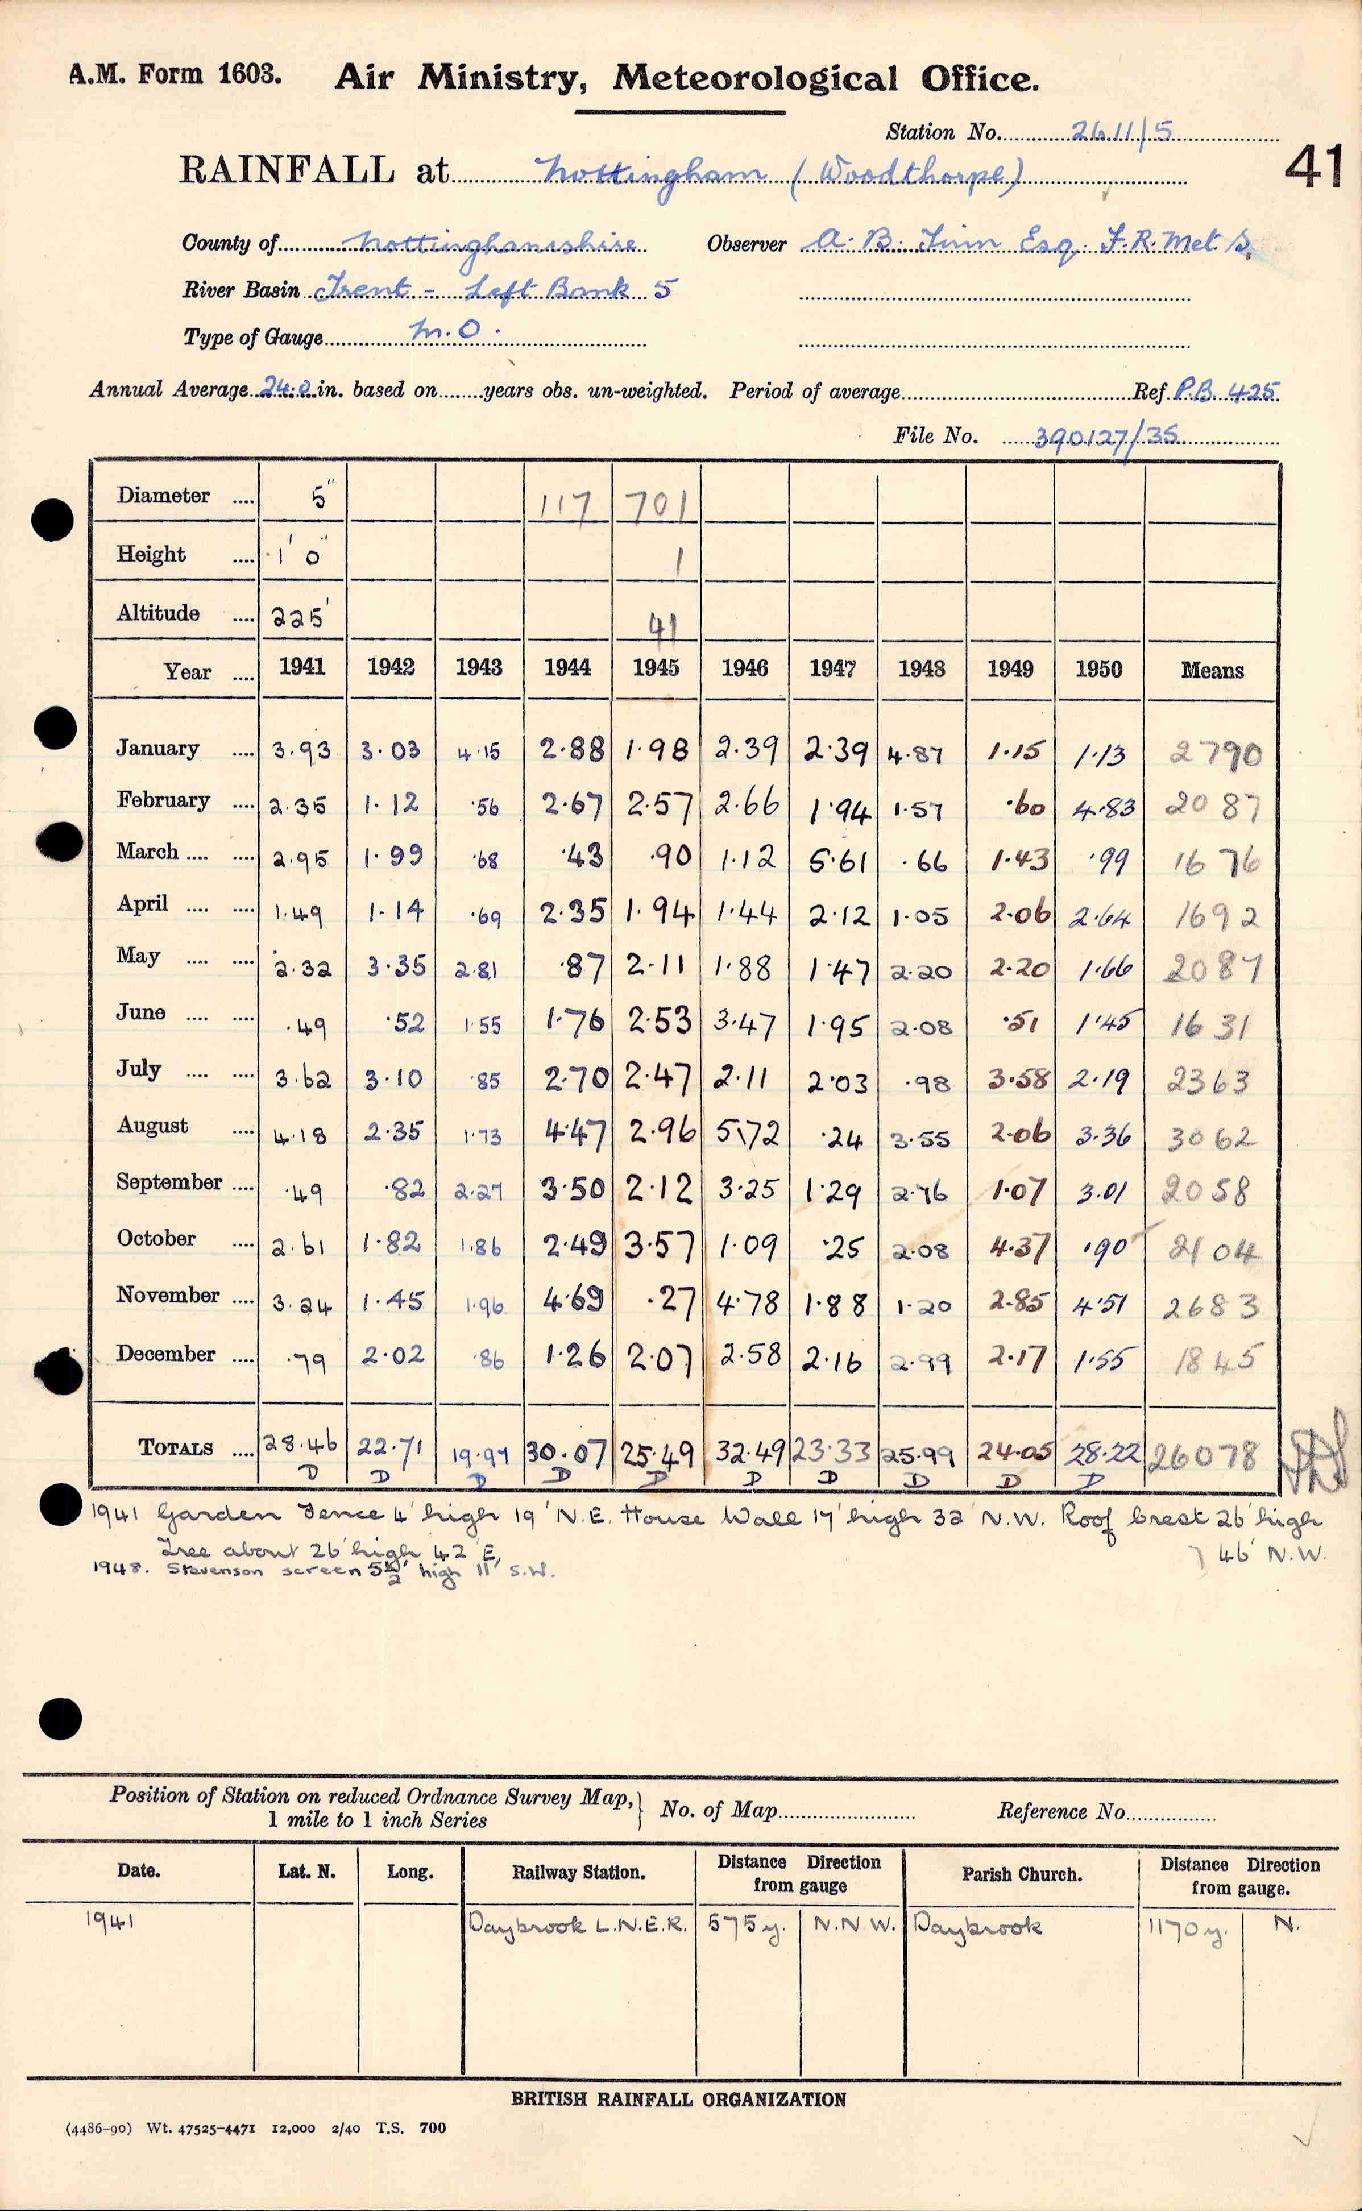 A.M. Form 1603. Air Ministry, Meteorological Office.
Station No. 2611/5
41
RAINFALL at Nottingham (Woodthorpe)
County of Nottinghamshire Observer A. B. Tinn Esq. F.R. Met S.
River Basin Trent - Left Bank 5
Type of Gauge M.O.
Annual Average 24.0 in. based on years obs. un-weighted. Period of average Ref P.B. 425
File No. 390127/35
Diameter 5" 117 701
Height 1' 0" 1
Altitude 225' 41
Year 1941 1942 1943 1944 1945 1946 1947 1948 1949 1950 Means
January 3.93 3.03 4.15 2.88 1.98 2.39 2.39 4.87 1.15 1.13 2790
February 2.35 1.12 .56 2.67 2.57 2.66 1.94 1.57 .60 4.83 2087
March 2.95 1.99 .68 .43 .90 1.12 5.61 .66 1.43 .99 1676
April 1.49 1.14 .69 2.35 1.94 1.44 2.12 1.05 2.06 2.64 1692
May 2.32 3.35 2.81 .87 2.11 1.88 1.47 2.20 2.20 1.66 2087
June .49 .52 1.55 1.76 2.53 3.47 1.95 2.08 .51 1.45 1631
July 3.62 3.10 .85 2.70 2.47 2.11 2.03 .98 3.58 2.19 2363
August 4.18 2.35 1.73 4.47 2.96 5.72 .24 3.55 2.06 3.36 3062
September .49 .82 2.27 3.50 2.12 3.25 1.29 2.76 1.07 3.01 2058
October 2.61 1.82 1.86 2.49 3.57 1.09 .25 2.08 4.37 .90 2104
November 3.24 1.45 1.96 4.69 .27 4.78 1.88 1.20 2.85 4.51 2683
December .79 2.02 .86 1.26 2.07 2.58 2.16 2.99 2.17 1.55 1845
TOTALS 28.46 22.71 19.97 30.07 25.49 32.49 23.33 25.99 24.05 28.22 26078
D D D D D D D D D D
1941 Garden Fence 4' high 19' N.E. House Wall 17' high 32' N.W. Roof Crest 26' high
Tree about 26' high 42' E, 46' N.W.
1948. Stevenson screen 5½' high 11' S.W.
Position of Station on reduced Ordnance Survey Map, 1 mile to 1 inch Series } No. of Map Reference No.
Date. Lat. N. Long. Railway Station. Distance Direction from gauge Parish Church. Distance Direction from gauge.
1941 Daybrook L.N.E.R. 575y. N.N.W. Daybrook 1170y. N.
BRITISH RAINFALL ORGANIZATION
(4486-90) Wt. 47525-4471 12,000 2/40 T.S. 700